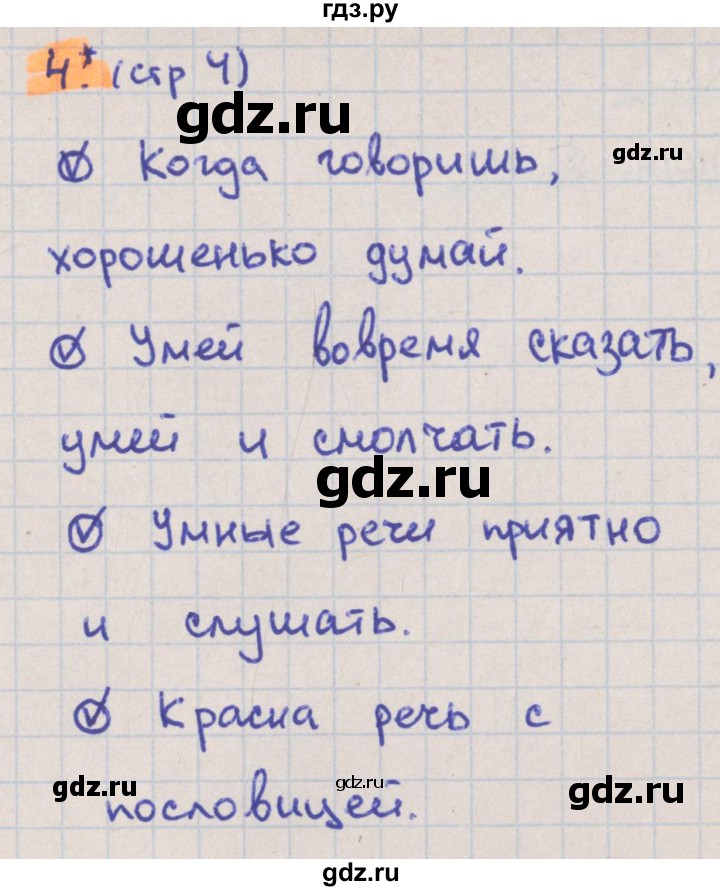 гдз.ру
4.* (стр 4)
gdz.ru
gdz.ru
Когда говоришь,
хорошенько думай.
Умей вовремя сказать,
умей и смолчать.
gdz.ru
Умные речи приятно
и слушать.
Красна речь с
gdz.ru
gdz.ru
gdz.ru
пословицей.
gdz.ru